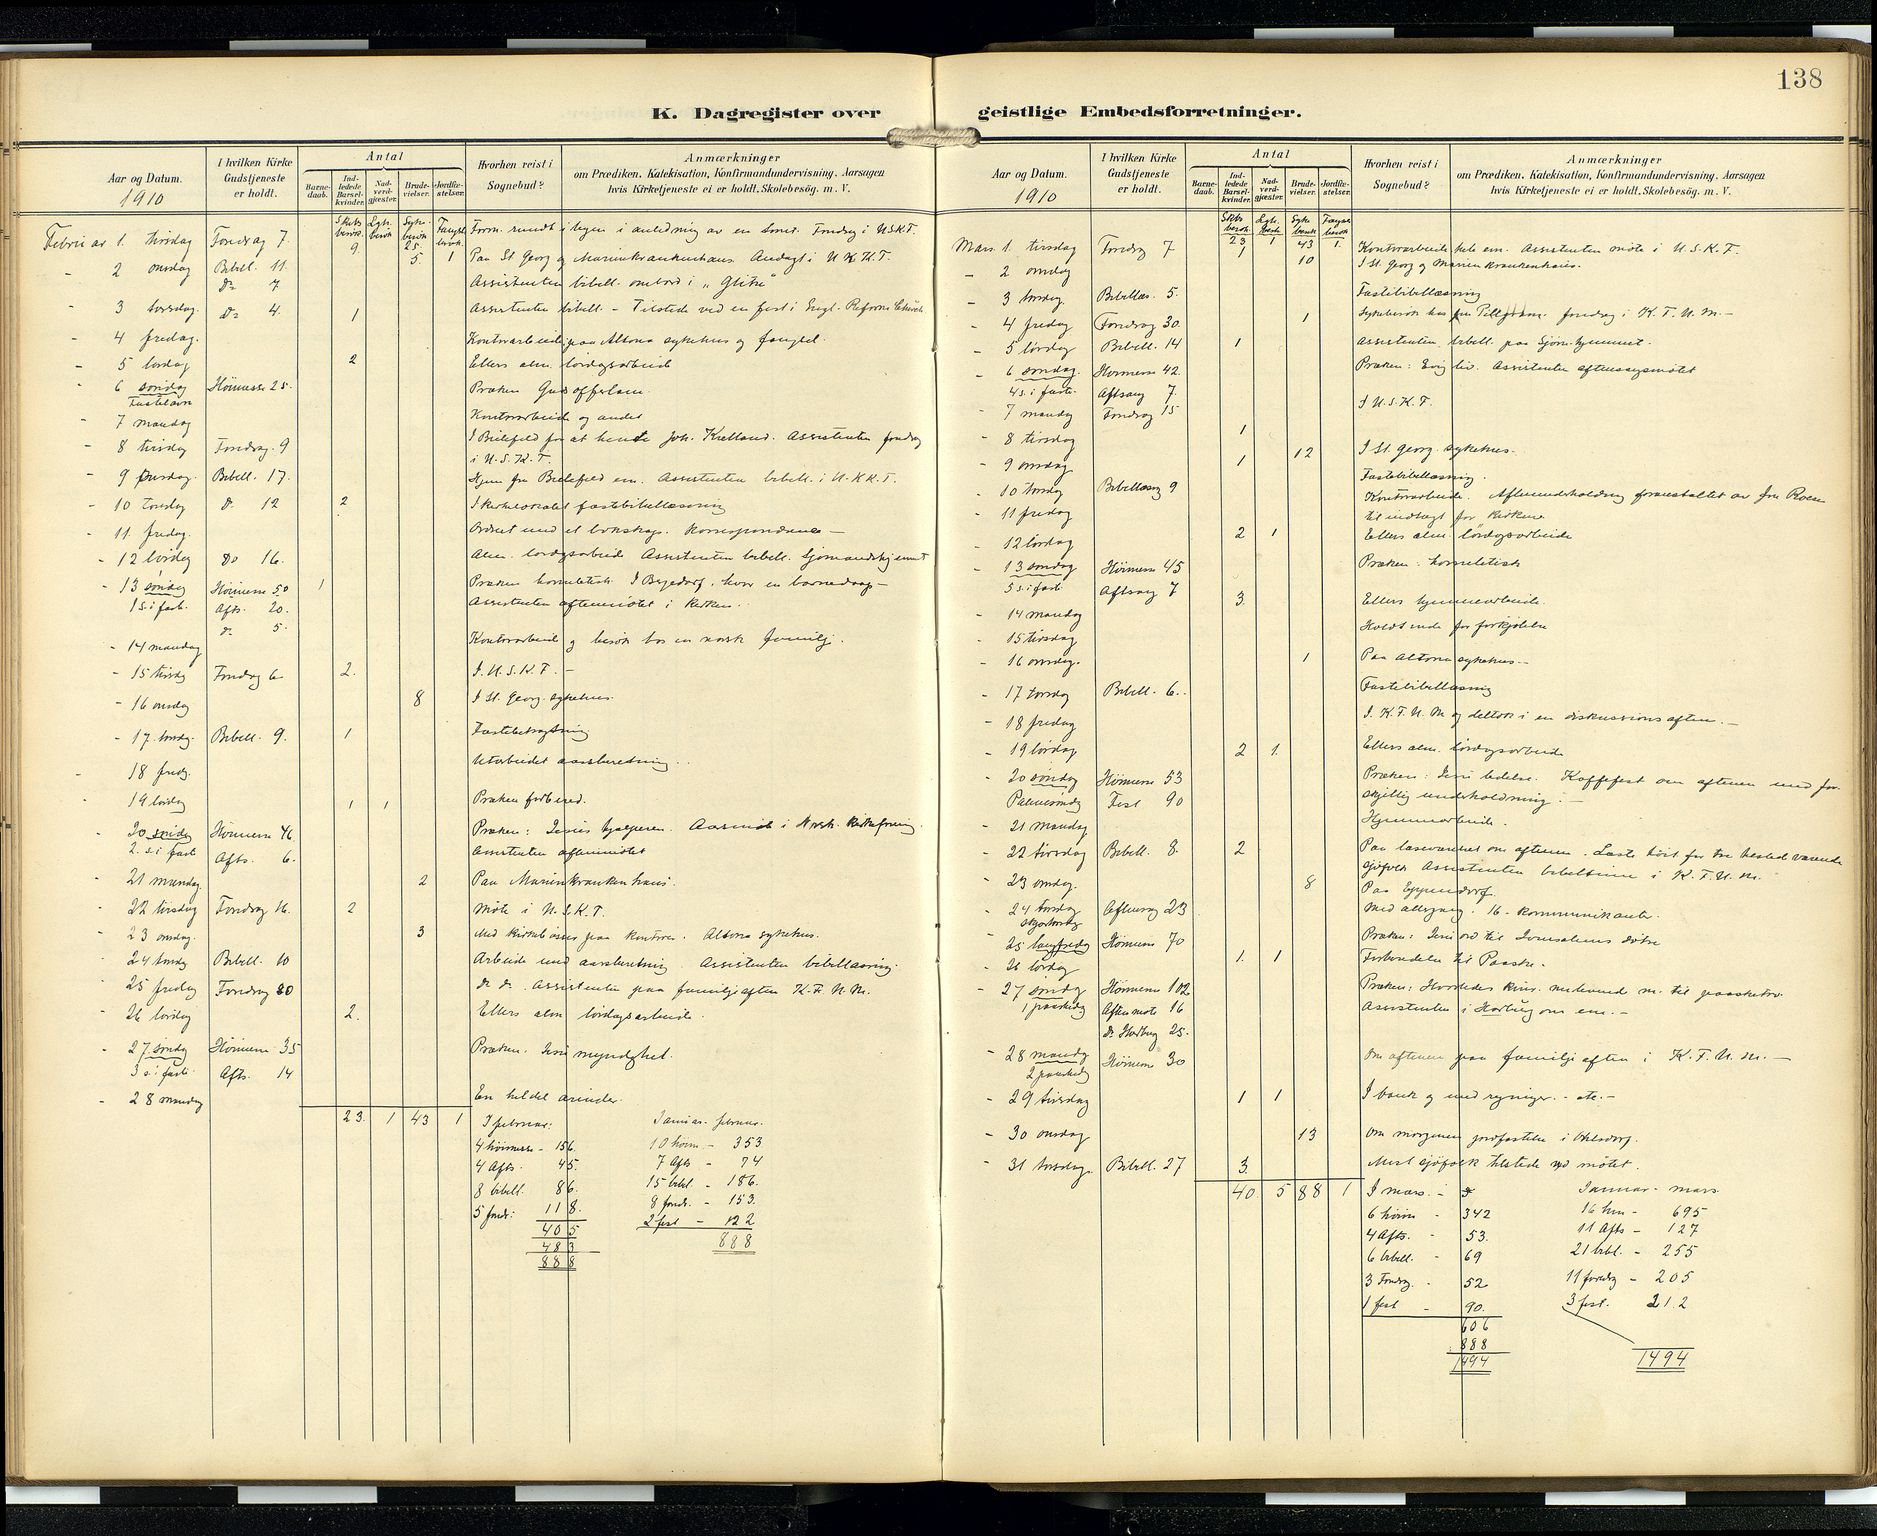 138
K. Dagregister over geistlige Embedsforretninger.
Aar og Datum.
1910
I hvilken Kirke Gudstjeneste er holdt.
Antal
Barne-daab.
Ind-ledede Barsel-kvinder.
Nad-verd-gjæster.
Brude-vielser.
Jordfæ-stelser.
Hvorhen reist i Sognebud?
Anmærkninger
om Prædiken, Katekisation, Konfirmandundervisning, Aarsagen
hvis Kirketjeneste ei er holdt, Skolebesög, m. V.
Februar 1. tirsdag Foredrag 7. 9. 25. i anledning av en Foredrag i U.S.K.T.
2 onsdag Bibell. 11. 5. 1 Paa St. Georg og Marienkrankenhaus. Andagt i U.K.K.T.
do 7 Assistenten bibell. ombord i "Glitre"
3 torsdag. do 4. 1 Assistenten bibell. - Tilstede ved en fest i Engl. Reform. Church
4 fredag. Kontorarbeide, paa Altona sykehus og
5 lørdag 2 Ellers alm. lørdagsarbeide
6 søndag Høimesse 25. Præken Guds offerlam.
Fastelavn
7 mandag Kontorarbeide og andet
8 tirsdag Foredrag 9 I Bielefeld for at hente Joh. Kielland. Assistenten foredrag
i U.S.K.T.
9 onsdag. Bibell. 17. Hjem fra Bielefeld em. Assistenten bibell. i U.K.K.T.
10 torsdag do 12 2 I kirkelokalet fastebibellæsning
11 fredag. Ordnet med et bokskap. Korrespondanse -
12 lørdag Do 16. Alm. lørdagsarbeide Assistenten bibell. Sjømandshjemmet
13 søndag Høimesse 50 1 Præken homiletisk I Bergedorf, hvor en barnedaap -
1 s. i fast. Afts. 20. Assistenten aftenmøtet i kirken.
do 5.
14 mandag Kontorarbeide og besøk hos en norsk familj.
15 tirsdag Foredrag 6 2. I U.S.K.T. -
16 onsdag 8 I St. Georg sykehus.
17 torsdag. Bibell. 9. 1 Fastebetragtning
18 fredag. Utarbeidet aarsberetning.
19 lørdag 1 1 Præken forbered.
20 søndag Høimesse 46 Præken: Jesus hjælperen. Aarsmøte i Norsk Kirkeforening
2. s. i fast Afts. 6. Assistenten aftenmøtet
21 mandag 2 Paa Marienkrankenhaus.
22 tirsdag Foredrag 16. 2 Møte i U.S.K.T.
23 onsdag. 3 Med kirkebøsser paa kontorer. Altona sykehus.
24 torsdag Bibell. 10 Arbeide med aarsberetning Assistenten bibellæsning.
25 fredag Foredrag 80 do do. Assistenten paa familjeaften K.F.U.M.
26 lørdag 2. Ellers alm lørdagsarbeide.
27 søndag Høimesse 35 Præken. Jesu myndighet.
3 s. i fast. Afts. 14
28 mandag En heldel ærinder.
23. 1 43 1 I februar: Januar. februar.
4 høimesse - 156. 10 høim - 353
4 Afts. 45. 7 Afts - 74
8 bibell. 86. 15 bibl. - 186.
5 foredr: 118. 8 foredr. - 153.
405 2 fest - 122
483 888
888
Aar og Datum.
1910
I hvilken Kirke Gudstjeneste er holdt.
Antal
Barne-daab.
Ind-ledede Barsel-kvinder.
Nad-verd-gjæster.
Brude-vielser.
Jordfæ-stelser.
Hvorhen reist i Sognebud?
Anmærkninger
om Prædiken, Katekisation, Konfirmandundervisning, Aarsagen
hvis Kirketjeneste ei er holdt, Skolebesög, m. V.
23 1 43 1.
Mars 1. tirsdag Foredrag 7 1 Kontorarbeide hele em. Assistenten møte i U.S.K.T.
2 onsdag 10 I St. Georg og Marienkrankenhaus.
3 torsdag. Bibellæs. 5. Fastebibellæsning
4 fredag Foredrag 30. 1 Sykebesøk hos foredrag i K.F.U.M. -
5 lørdag Bibell. 14 1 Assistenten bibell. paa Sjøm.hjemmet.
6 søndag. Høimesse 42. Præken: Evig liv. Assistenten aftensangsmøtet
4 s. i faste Aftsang 7.
7 mandag Foredrag 15 I U.S.K.T.
8 tirsdag 1
9 onsdag 1 12 I St. Georg sykehus.
10 torsdag Bibellæsning 9 Fastebibellæsning.
11 fredag Kontorarbeide. Aftenunderholdning foranstaltet av
til indtægt for kirken
12 lørdag 2 1 Ellers alm. lørdagsarbeide
13 søndag Høimesse 45 Præken: homiletisk
5 s. i fast Aftsang 7
14 mandag 3. Ellers hjemmearbeide.
15 tirsdag Holdt inde for forkjølelse
16 onsdag. 1 Paa Altona sykehus -
17 torsdag Bibell. 6. Fastebibellæsning
18 fredag I K.F.U.M og deltok i en diskussionsaften. -
19 lørdag 2 1. Ellers alm. lørdagsarbeide
20 søndag Høimesse 53 Præken: Jesu lidelse. Kaffefest om aftenen med for-
Palmesøndag Fest 90 skjellig underholdning. -
21 mandag Hjemmearbeide.
22 tirsdag Bibell. 8. 2 Paa læseværelset om aftenen. Læste høit for tre tilstedeværende
sjøfolk Assistenten bibeltime i K.F.U.M.
23 onsdag. 8 Paa Eppendorf.
24 torsdag Aftensang 23 Med altergang. 16 - kommunikanter.
skjærtorsdag
25 langfredag Høimesse 70 Præken: Jesu ord til Jerusalems døtre
26 lørdag 1. 1 Forberedelse til Paaske.
27 søndag Høimesse 102 Præken: Hvorledes til paasketro.
1 paaskedag Aftenmøte 16 Assistenten i Harburg om em. -
do Harburg 25.
28 mandag Høimesse 30 Om aftenen paa familjeaften i K.F.U.M. -
2 paaskedag
29 tirsdag 1 1 I bank og med regninger. - etc. -
30 onsdag 13 Om morgenen jordfæstelse i Ohlsdorf.
31 torsdag. Bibell. 27 3. Mest sjøfolk tilstede ved møtet.
40. 5 88 1 I mars. - Januar - mars.
6 høim - 342 16 hm - 695
4 Afts. - 53. 11 Afts - 127
6 bibell. - 69 21 bibl. - 255
3 Foredrag. - 52 11 foredrag - 205
1 fest - 90. 3 fest. 212
606
888
1494 1494